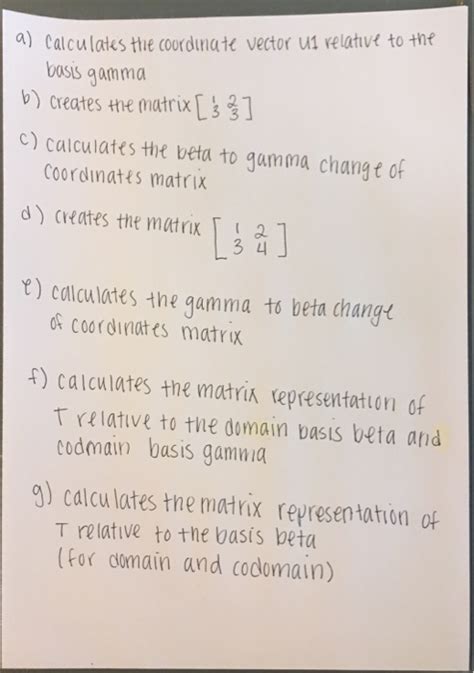 a) Calculates the coordinate vector u1 relative to the
basis gamma
b) creates the matrix [ 1 2
3 3 ]
c) calculates the beta to gamma change of
coordinates matrix
d) creates the matrix [ 1 2
3 4 ]
e) calculates the gamma to beta change
of coordinates matrix
f) calculates the matrix representation of
T relative to the domain basis beta and
codmain basis gamma
g) calculates the matrix representation of
T relative to the basis beta
(for domain and codomain)